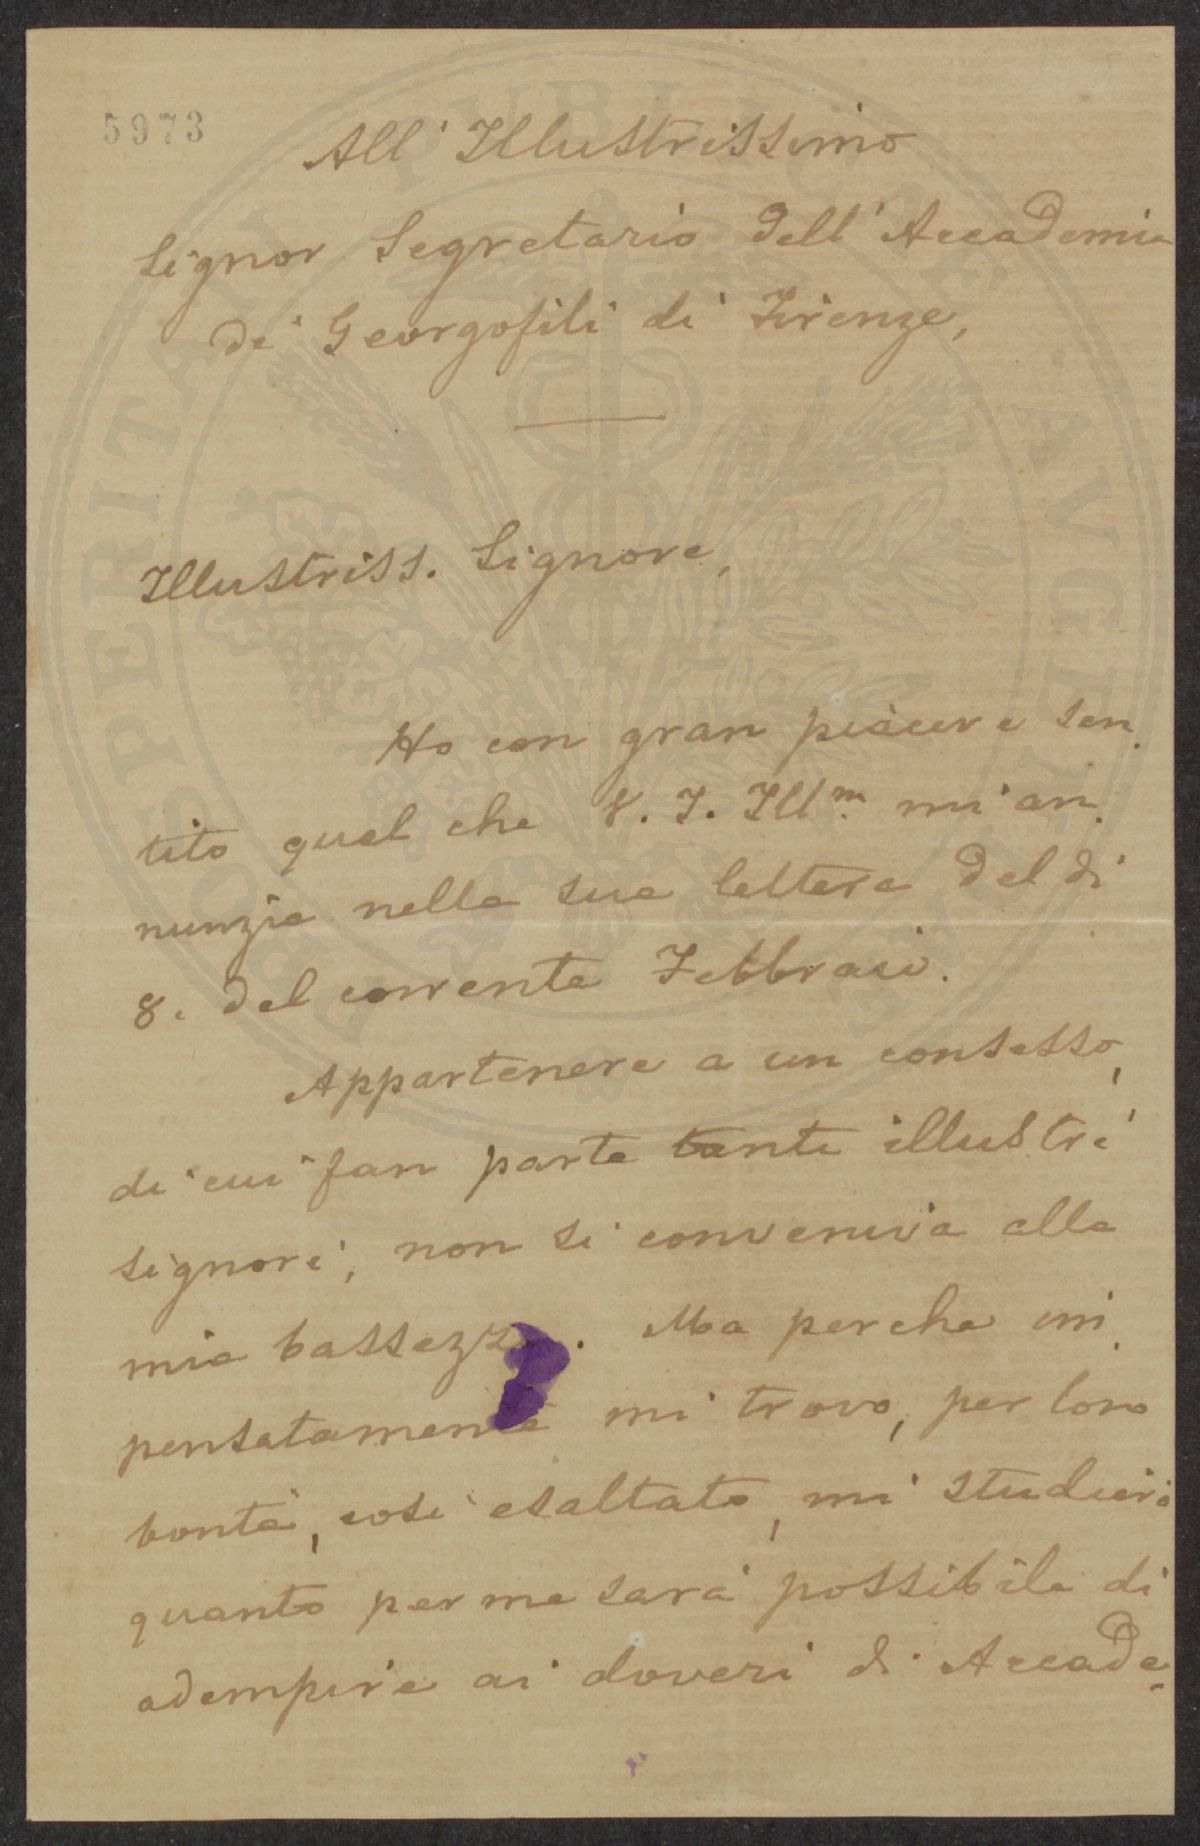 5973
All' Illustrissimo
Signor Segretario dell' Accademia
de' Georgofili di Firenze,
Illustriss. Signore,
Ho con gran piacere sen
tito quel che V. S. Illm. mi an
nunzia nella sua lettera del di
8. del corrente Febbraio.
Appartenere a un consesso,
di cui fan parte tanti illustri
signori, non si conveniva alla
mia bassezza. Ma perche im
pensatamente mi trovo, per loro
bontà, così esaltato, mi studierò
quanto per me sarà possibile di
adempire ai doveri di Accade-
PROSPERITATI PUBLICAE AUGENDAE